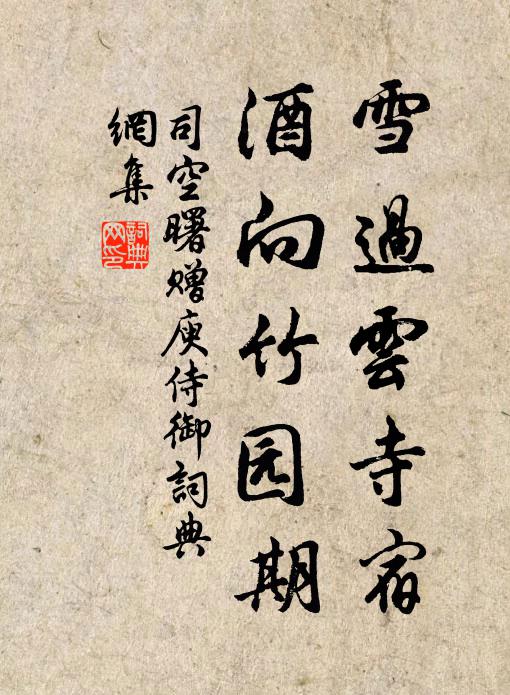 雪過雲寺宿
酒向竹园期
司空曙贈庾侍御詞典
網集
詞典
网印